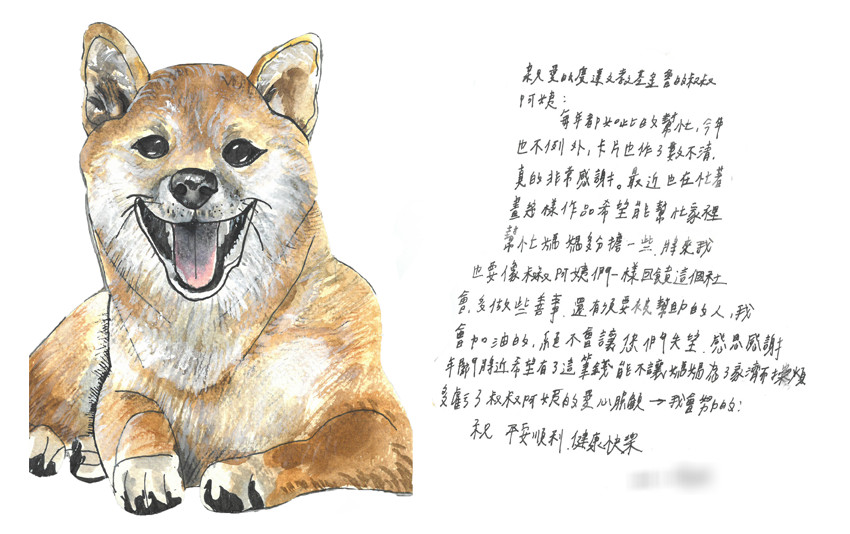 親愛的廣達文教基金會的叔叔
阿姨:
每年都如此的幫忙,今年
也不例外,卡片也作了數不清,
真的非常感謝。最近也在忙著
畫幾樣作品希望能幫忙家裡
幫忙媽媽多分擔一些,將來我
也要像叔叔阿姨們一樣回饋這個社
會,多做些善事,還有很要被幫助的人,我
會加油的,絕不會讓您們失望,感恩感謝
年關將近希望有了這筆錢能不讓媽媽為了家濟而煩
多虧了叔叔阿姨的愛心照顧→我會努力的:
祝 平安順利,健康快樂